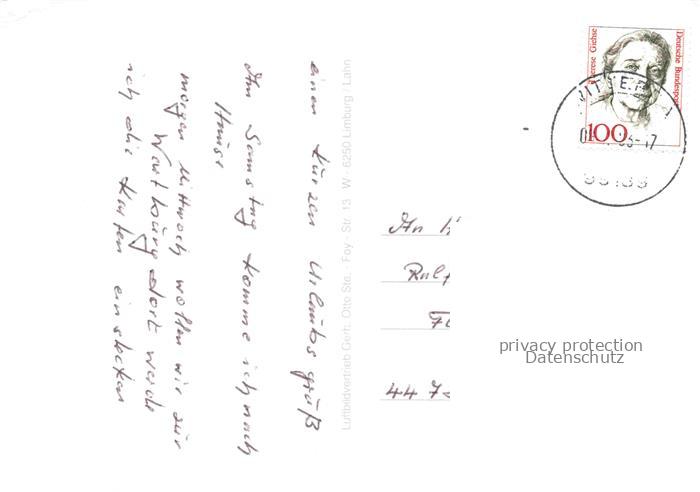 einen kurzen Urlaubsgruß
Am Samstag komme ich nach
Hause
morgen Mittwoch wollen wir zur
Wartburg dort werde
ich die Karten einstecken
Luftbildvertrieb Gerh. Otto Ste. · Foy · Str. 13 W - 6250 Limburg / Lahn
Therese Giehse
Deutsche Bundespost
100
An
44 7
privacy protection
Datenschutz